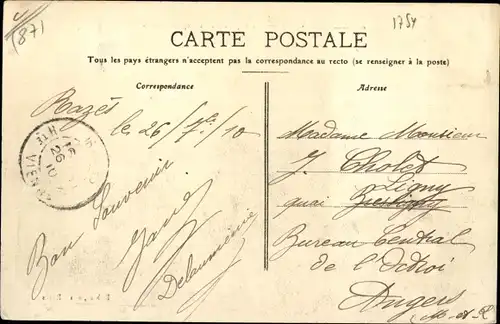 (87)
1754
CARTE POSTALE
Tous les pays étrangers n'acceptent pas la correspondance au recto (se renseigner à la poste)
Correspondance
Adresse
Razès
le 26/7/10
Bon Souvenir
Hte VIENNE
26
10
Madame Monsieur
J. Cholet
Ligny
quai
Bureau Central
de l'Octroi
Angers
(M-et-L